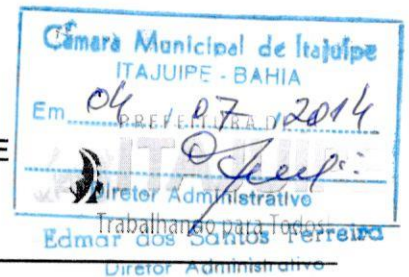 Câmara Municipal de Itajuípe
ITAJUIPE - BAHIA
Em 04 / 07 / 2014
PREFEITURA D
E
ITAJUIP
Diretor Administrativo
Trabalhando para Todos!
Edmar dos Santos Ferreira
Diretor Administrativo